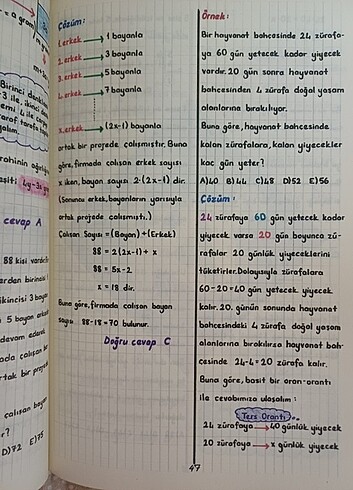 = a gram
Birinci
3 ile, ikinci
emi 4 ile
taraf tarafa
galım.
rahinin ağırlığı
cevap A
88 kişi vardır
erden birincisi
ikincisi 3 bayan
5 bayan
devam ederek
ortak bir proje
çalışan bayan
r?
D)72 E)75
Çözüm:
1. erkek → 1 bayanla
2. erkek → 3 bayanla
3. erkek → 5 bayanla
4. erkek → 7 bayanla
x. erkek → (2x-1) bayanla
ortak bir projede çalışmıştır. Buna
göre, firmada çalışan erkek sayısı
x iken, bayan sayısı 2·(2x-1) dir.
(Sonuncu erkek, bayanların yarısıyla
ortak projede çalışmıştı.)
Çalışan Sayısı = (Bayan) + (Erkek)
88 = 2(2x-1) + x
88 = 5x-2
x = 18 dir.
Buna göre, firmada çalışan bayan
sayısı 88-18=70 bulunur.
Doğru cevap C
Örnek:
Bir hayvanat bahçesinde 24 zürafa-
ya 60 gün yetecek kadar yiyecek
vardır. 20 gün sonra hayvanat
bahçesinden 4 zürafa doğal yaşam
alanlarına bırakılıyor.
Buna göre, hayvanat bahçesinde
kalan zürafalara, kalan yiyecekler
kaç gün yeter?
A)40 B)44 C)48 D)52 E)56
Çözüm:
24 zürafaya 60 gün yetecek kadar
yiyecek varsa 20 gün boyunca zü-
rafalar 20 günlük yiyeceklerini
tüketirler. Dolayısıyla zürafalara
60-20=40 gün yetecek yiyecek
kalır. 20. günün sonunda hayvanat
bahçesindeki 4 zürafa doğal yaşam
alanlarına bırakılırsa hayvanat bah-
çesinde 24-4=20 zürafa kalır.
Buna göre, basit bir oran-orantı
ile cevabımıza ulaşalım:
Ters Orantı
24 zürafaya → 40 günlük yiyecek
20 zürafaya → x günlük yiyecek
47